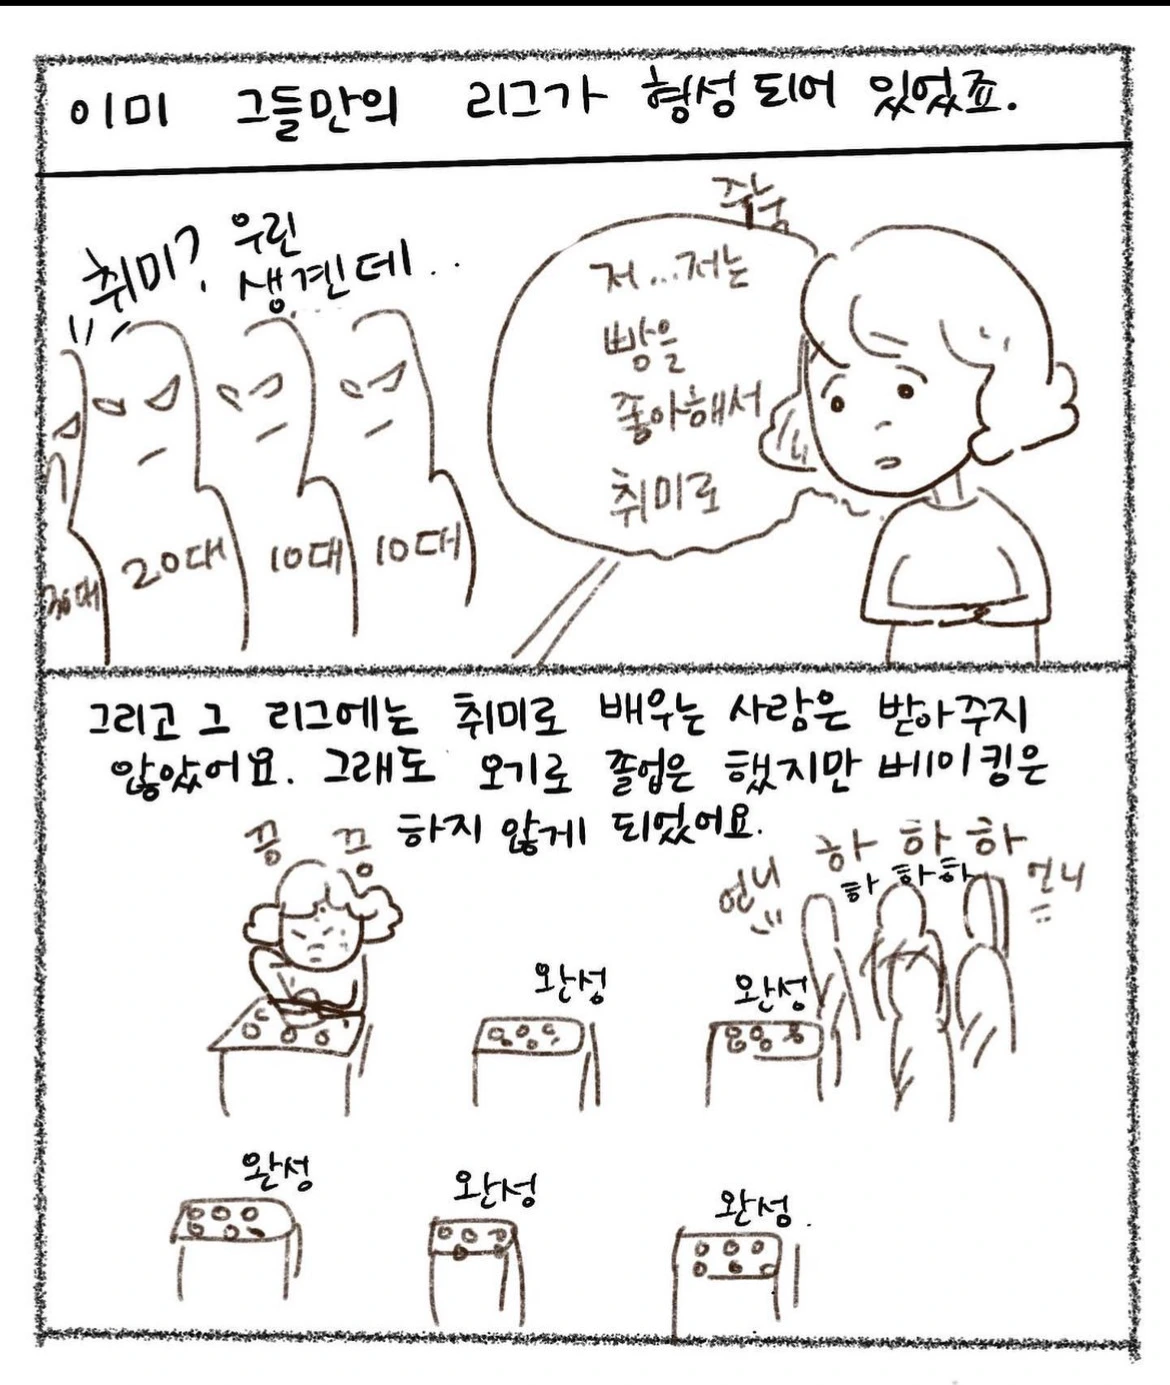 이미 그들만의 리그가 형성되어 있었죠.
취미? 우린
생곈데..
주눅
저...저는
빵을
좋아해서
취미로
30대
20대
10대
10대
그리고 그 리그에는 취미로 배우는 사람은 받아주지
않았어요. 그래도 오기로 졸업은 했지만 베이킹은
하지 않게 되었어요.
끙 끙
하 하 하
하 하 하
언니
언니
완성
완성
완성
완성
완성